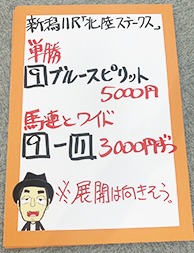 新潟11R「北陸ステークス」
単勝
9ブルースピリット
5000円
馬連とワイド
9-11 3000円ずつ
※展開は向きそう。